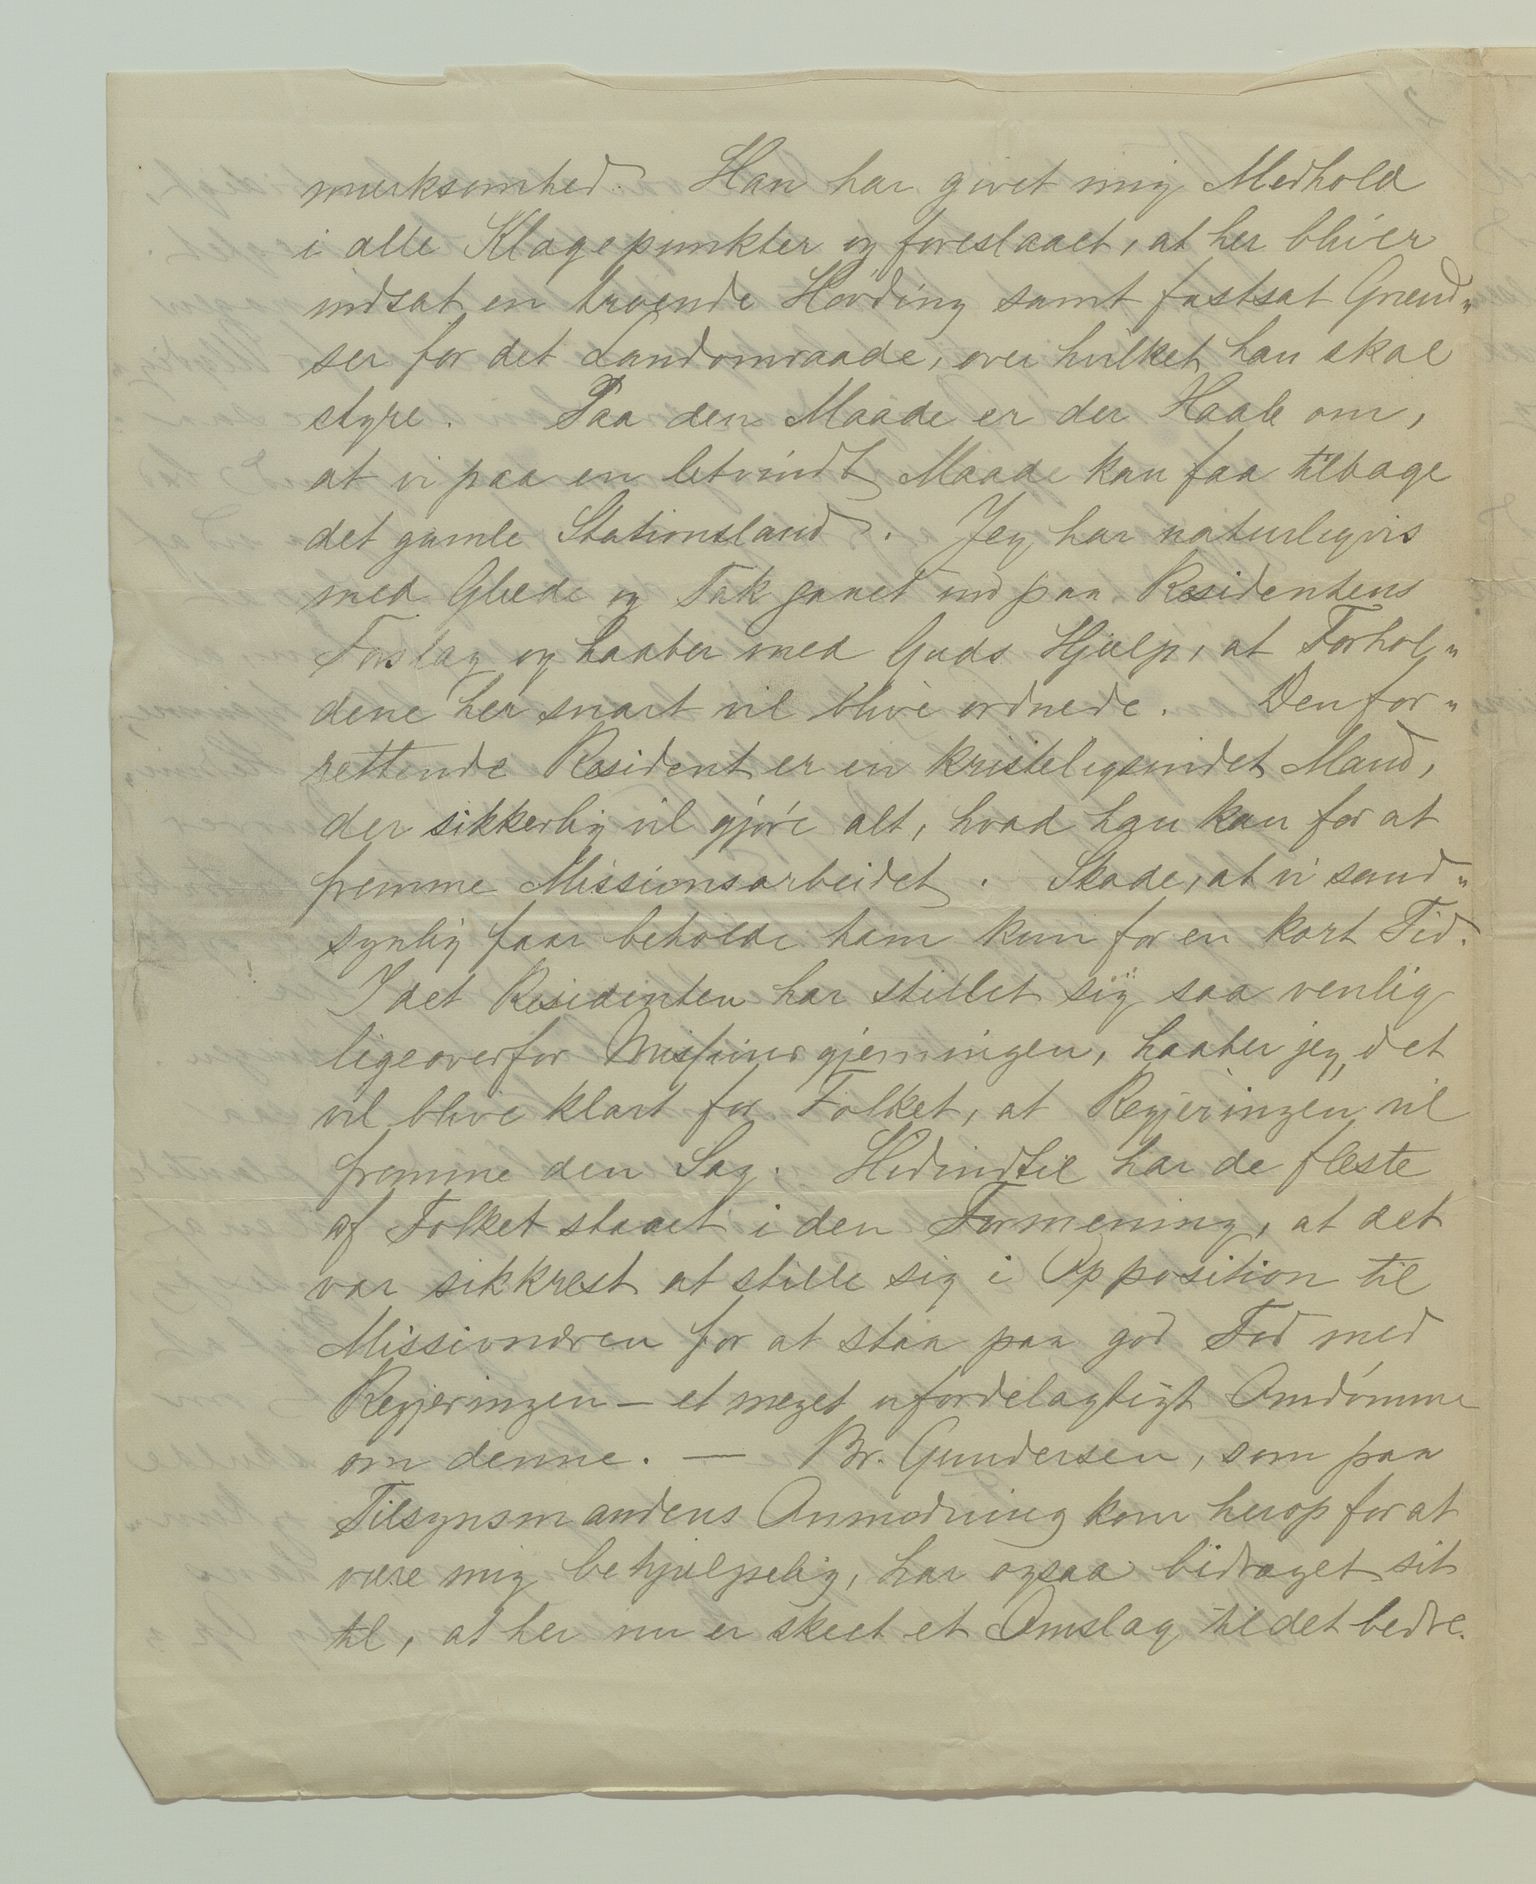 mærksomhed. Han har givet mig Medhold
i alle Klagepunkter og foreslaaet, at her bliver
indsat en troende Høvding samt fastsat Grænd„
ser for det Landomraade, over hvilket han skal
styre. Paa den Maade er der Haab om,
at vi paa en letvindt Maade kan faa tilbage
det gamle Stationsland. Jeg har naturligvis
med Glæde og Tak gaaet ind paa Residentens
Forslag og haaber med Guds Hjælp, at Forhol„
dene her snart vil blive ordnede. Den for„
rettende Resident er en kristeligsindet Mand,
der sikkerlig vil gjøre alt, hvad han kan for at
fremme Missionsarbeidet. Skade, at vi sand„
synlig faar beholde ham kun for en kort Tid.
Idet Residenten har stillet sig saa venlig
ligeoverfor Missionsgjerningen, haaber jeg, det
vil blive klart for Folket, at Regjeringen vil
fremme den Sag. Hidindtil har de fleste
af Folket staaet i den Formening, at det
var sikkrest at stille sig i Opposition til
Missionæren for at staa paa god Fod med
Regjeringen – et meget ufordelagtigt Omdømme
om denne. — Br. Gundersen, som paa
Tilsynsmandens Anmodning kom herop for at
være mig behjælpelig, har ogsaa bidraget sit
til, at her nu er skeet et Omslag til det bedre.